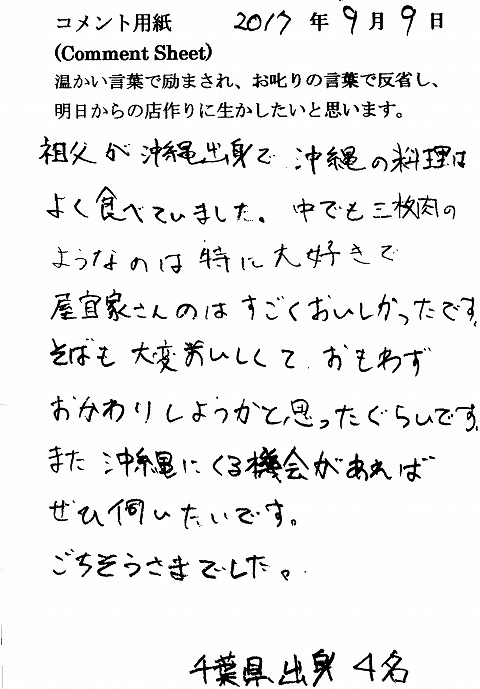 コメント用紙 2017 年 9 月 9 日
(Comment Sheet)
温かい言葉で励まされ、お叱りの言葉で反省し、
明日からの店作りに生かしたいと思います。
祖父が沖縄出身で 沖縄の料理は
よく食べていました。中でも三枚肉の
ようなのは特に大好きで
屋宜家さんのはすごくおいしかったです。
そばも大変美いしくて おもわず
おかわりしようかと思ったぐらいです。
また 沖縄にくる機会があれば
ぜひ伺いたいです。
ごちそうさまでした。
千葉県出身 4名